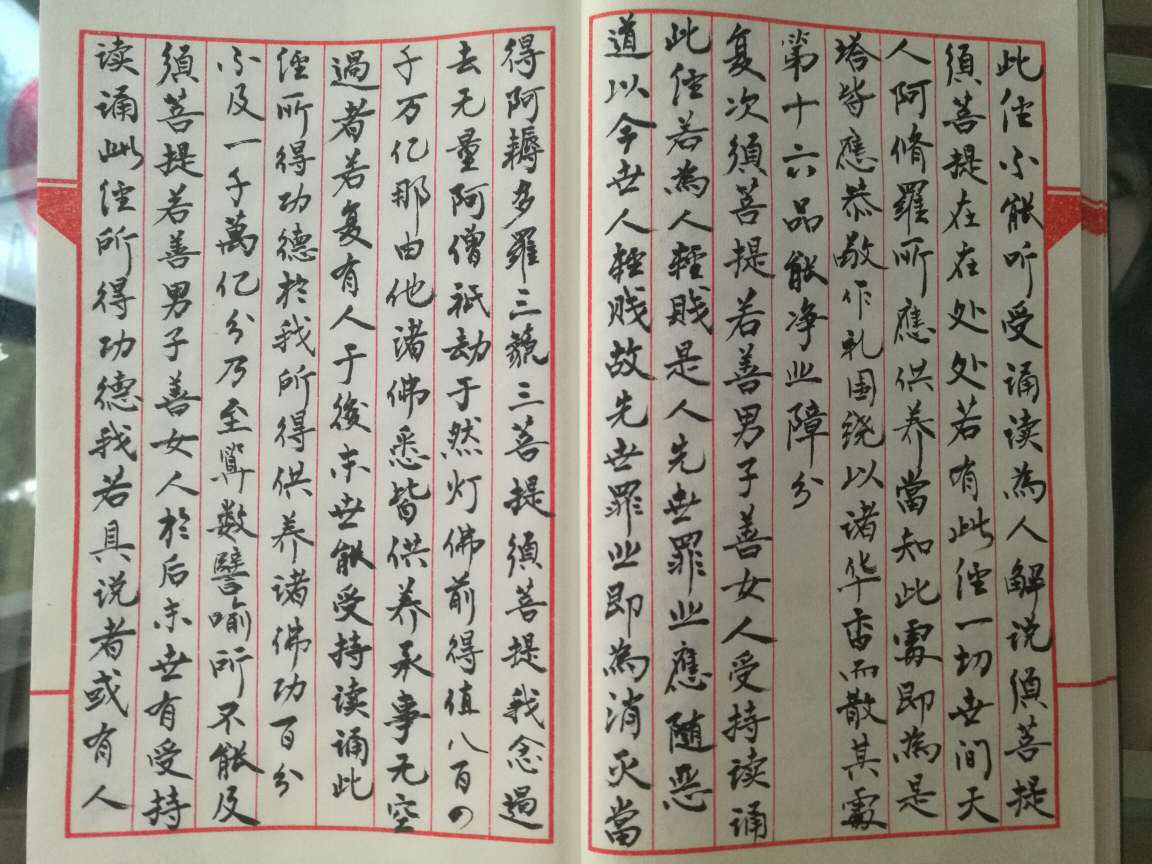 此经不能听受诵读為人解说须菩提
须菩提在在处处若有此经一切世间天
人阿脩羅所應供养當知此處即為是
塔皆應恭敬作礼围绕以诸华香而散其處
第十六品能净业障分
复次须菩提若善男子善女人受持读诵
此经若為人輕賤是人先世罪业應随恶
道以今世人輕贱故先世罪业即為消灭當
得阿耨多羅三藐三菩提须菩提我念過
去无量阿僧祇劫于然灯佛前得值八百四
千万亿那由他诸佛悉皆供养承事无空
過者若复有人于後末世能受持读诵此
经所得功德於我所得供养诸佛功百分
不及一千萬亿分乃至算数譬喻所不能及
须菩提若善男子善女人於后末世有受持
读诵此经所得功德我若具说者或有人